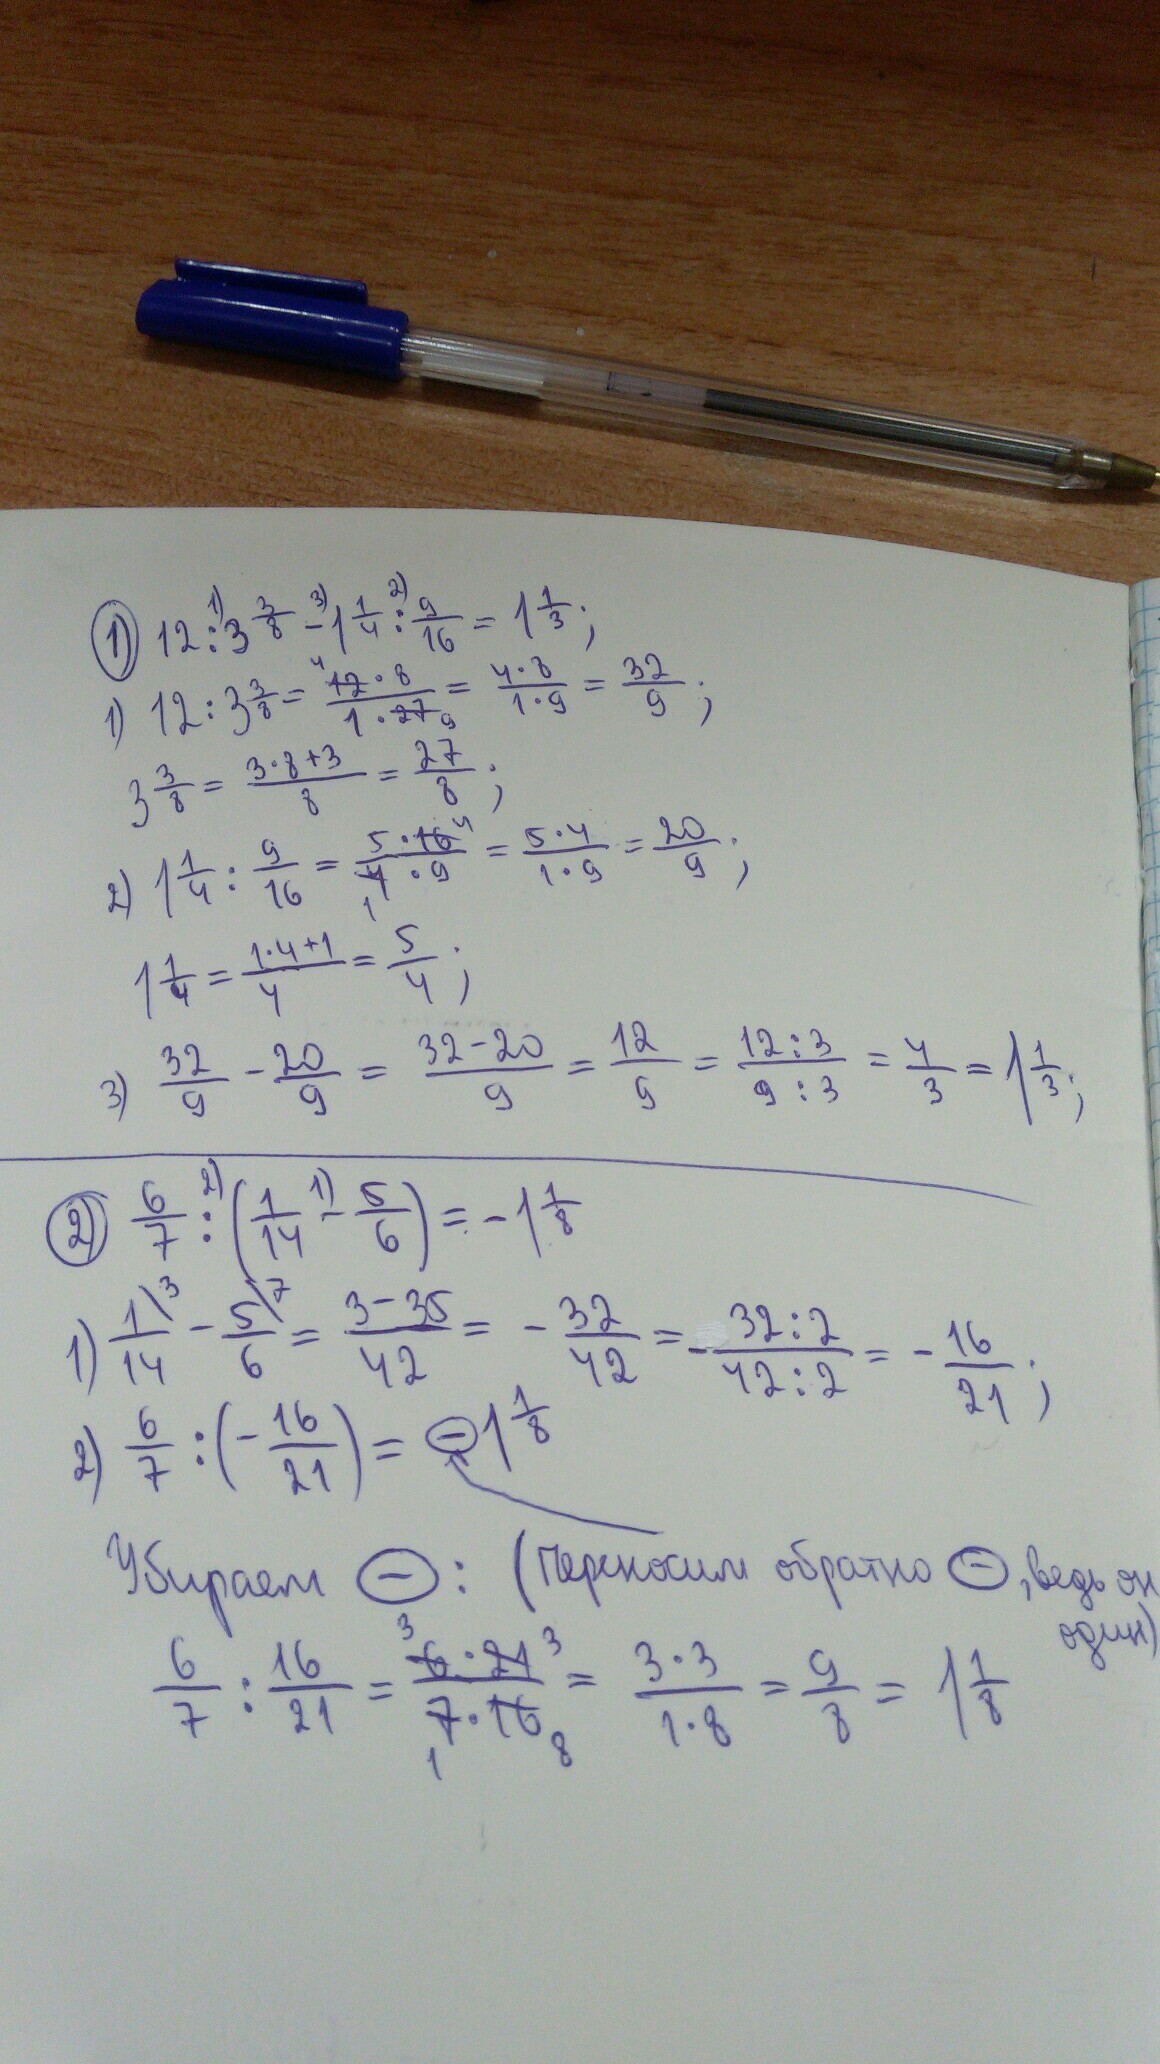 1) 12 :¹⁾ 3 3/8 -³⁾ 1 1/4 :²⁾ 9/16 = 1 1/3;
1) 12 : 3 3/8 = ⁴12·8/1·27₉ = 4·8/1·9 = 32/9;
3 3/8 = 3·8+3/8 = 27/8;
2) 1 1/4 : 9/16 = 5·16⁴/₁4·9 = 5·4/1·9 = 20/9;
1 1/4 = 1·4+1/4 = 5/4;
3) 32/9 - 20/9 = 32-20/9 = 12/9 = 12:3/9:3 = 4/3 = 1 1/3;
2) 6/7 :²⁾ (1/14 -¹⁾ 5/6) = -1 1/8
1) 1\³/14 - 5\⁷/6 = 3-35/42 = -32/42 = -32:2/42:2 = -16/21;
2) 6/7 : (-16/21) = -1 1/8
Убираем -: (Переносим обратно -, ведь он
один)
6/7 : 16/21 = ³6·21³/₁7·16₈ = 3·3/1·8 = 9/8 = 1 1/8